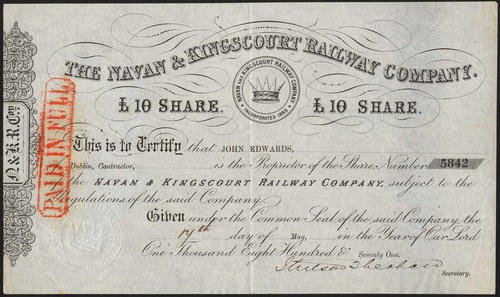 THE NAVAN & KINGSCOURT RAILWAY COMPANY.
£10 SHARE.
NAVAN AND KINGSCOURT RAILWAY COMPANY
INCORPORATED 1865
£10 SHARE.
N. & K.R. Coy.
PAID IN FULL
This is to Certify that JOHN EDWARDS,
Dublin, Contractor, is the Proprietor of the Share Number 5842
the NAVAN & KINGSCOURT RAILWAY COMPANY, subject to the
Regulations of the said Company.
Given under the Common Seal of the said Company, the
17th day of May, in the Year of Our Lord
One Thousand Eight Hundred & Seventy One.
Secretary.